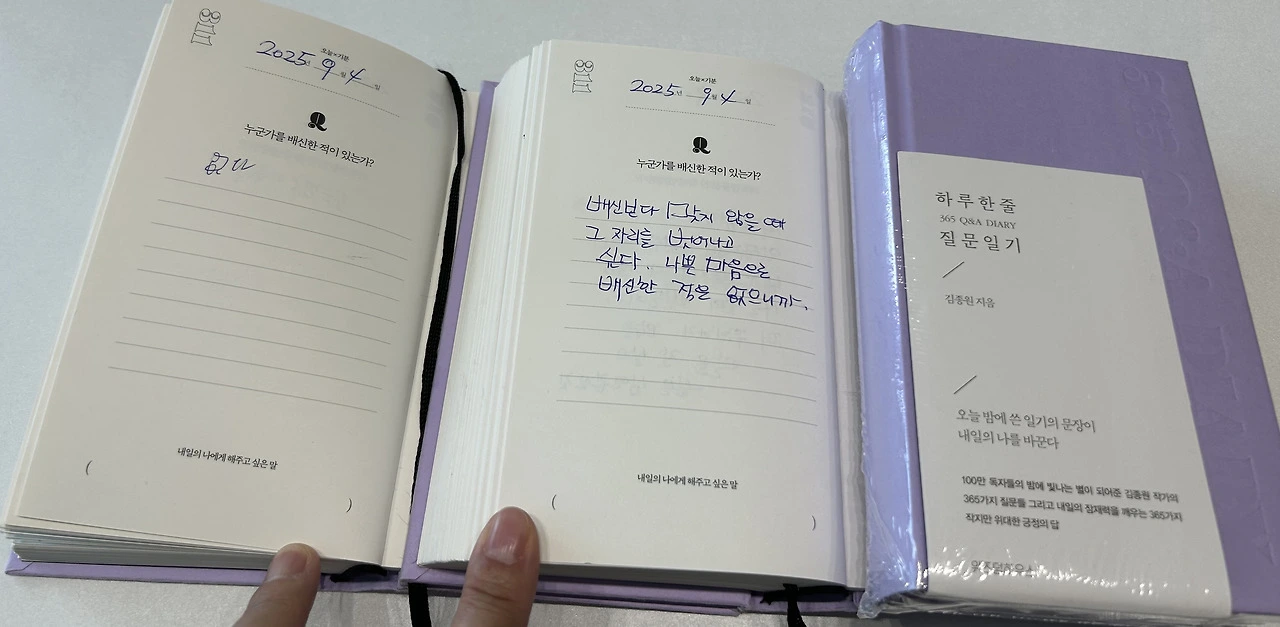 오늘×기분
2025년 9월 4일
누군가를 배신한 적이 있는가?
없다
내일의 나에게 해주고 싶은 말
( )
오늘×기분
2025년 9월 4일
누군가를 배신한 적이 있는가?
배신보다 맞지 않을 때
그 자리를 벗어나고
싶다. 나쁜 마음으로
배신한 적은 없으니까.
내일의 나에게 해주고 싶은 말
( )
하루 한 줄
365 Q&A DIARY
질문일기
김종원 지음
오늘 밤에 쓴 일기의 문장이
내일의 나를 바꾼다
100만 독자들의 밤에 빛나는 별이 되어준 김종원 작가의
365가지 질문들 그리고 내일의 잠재력을 깨우는 365가지
작지만 위대한 긍정의 답